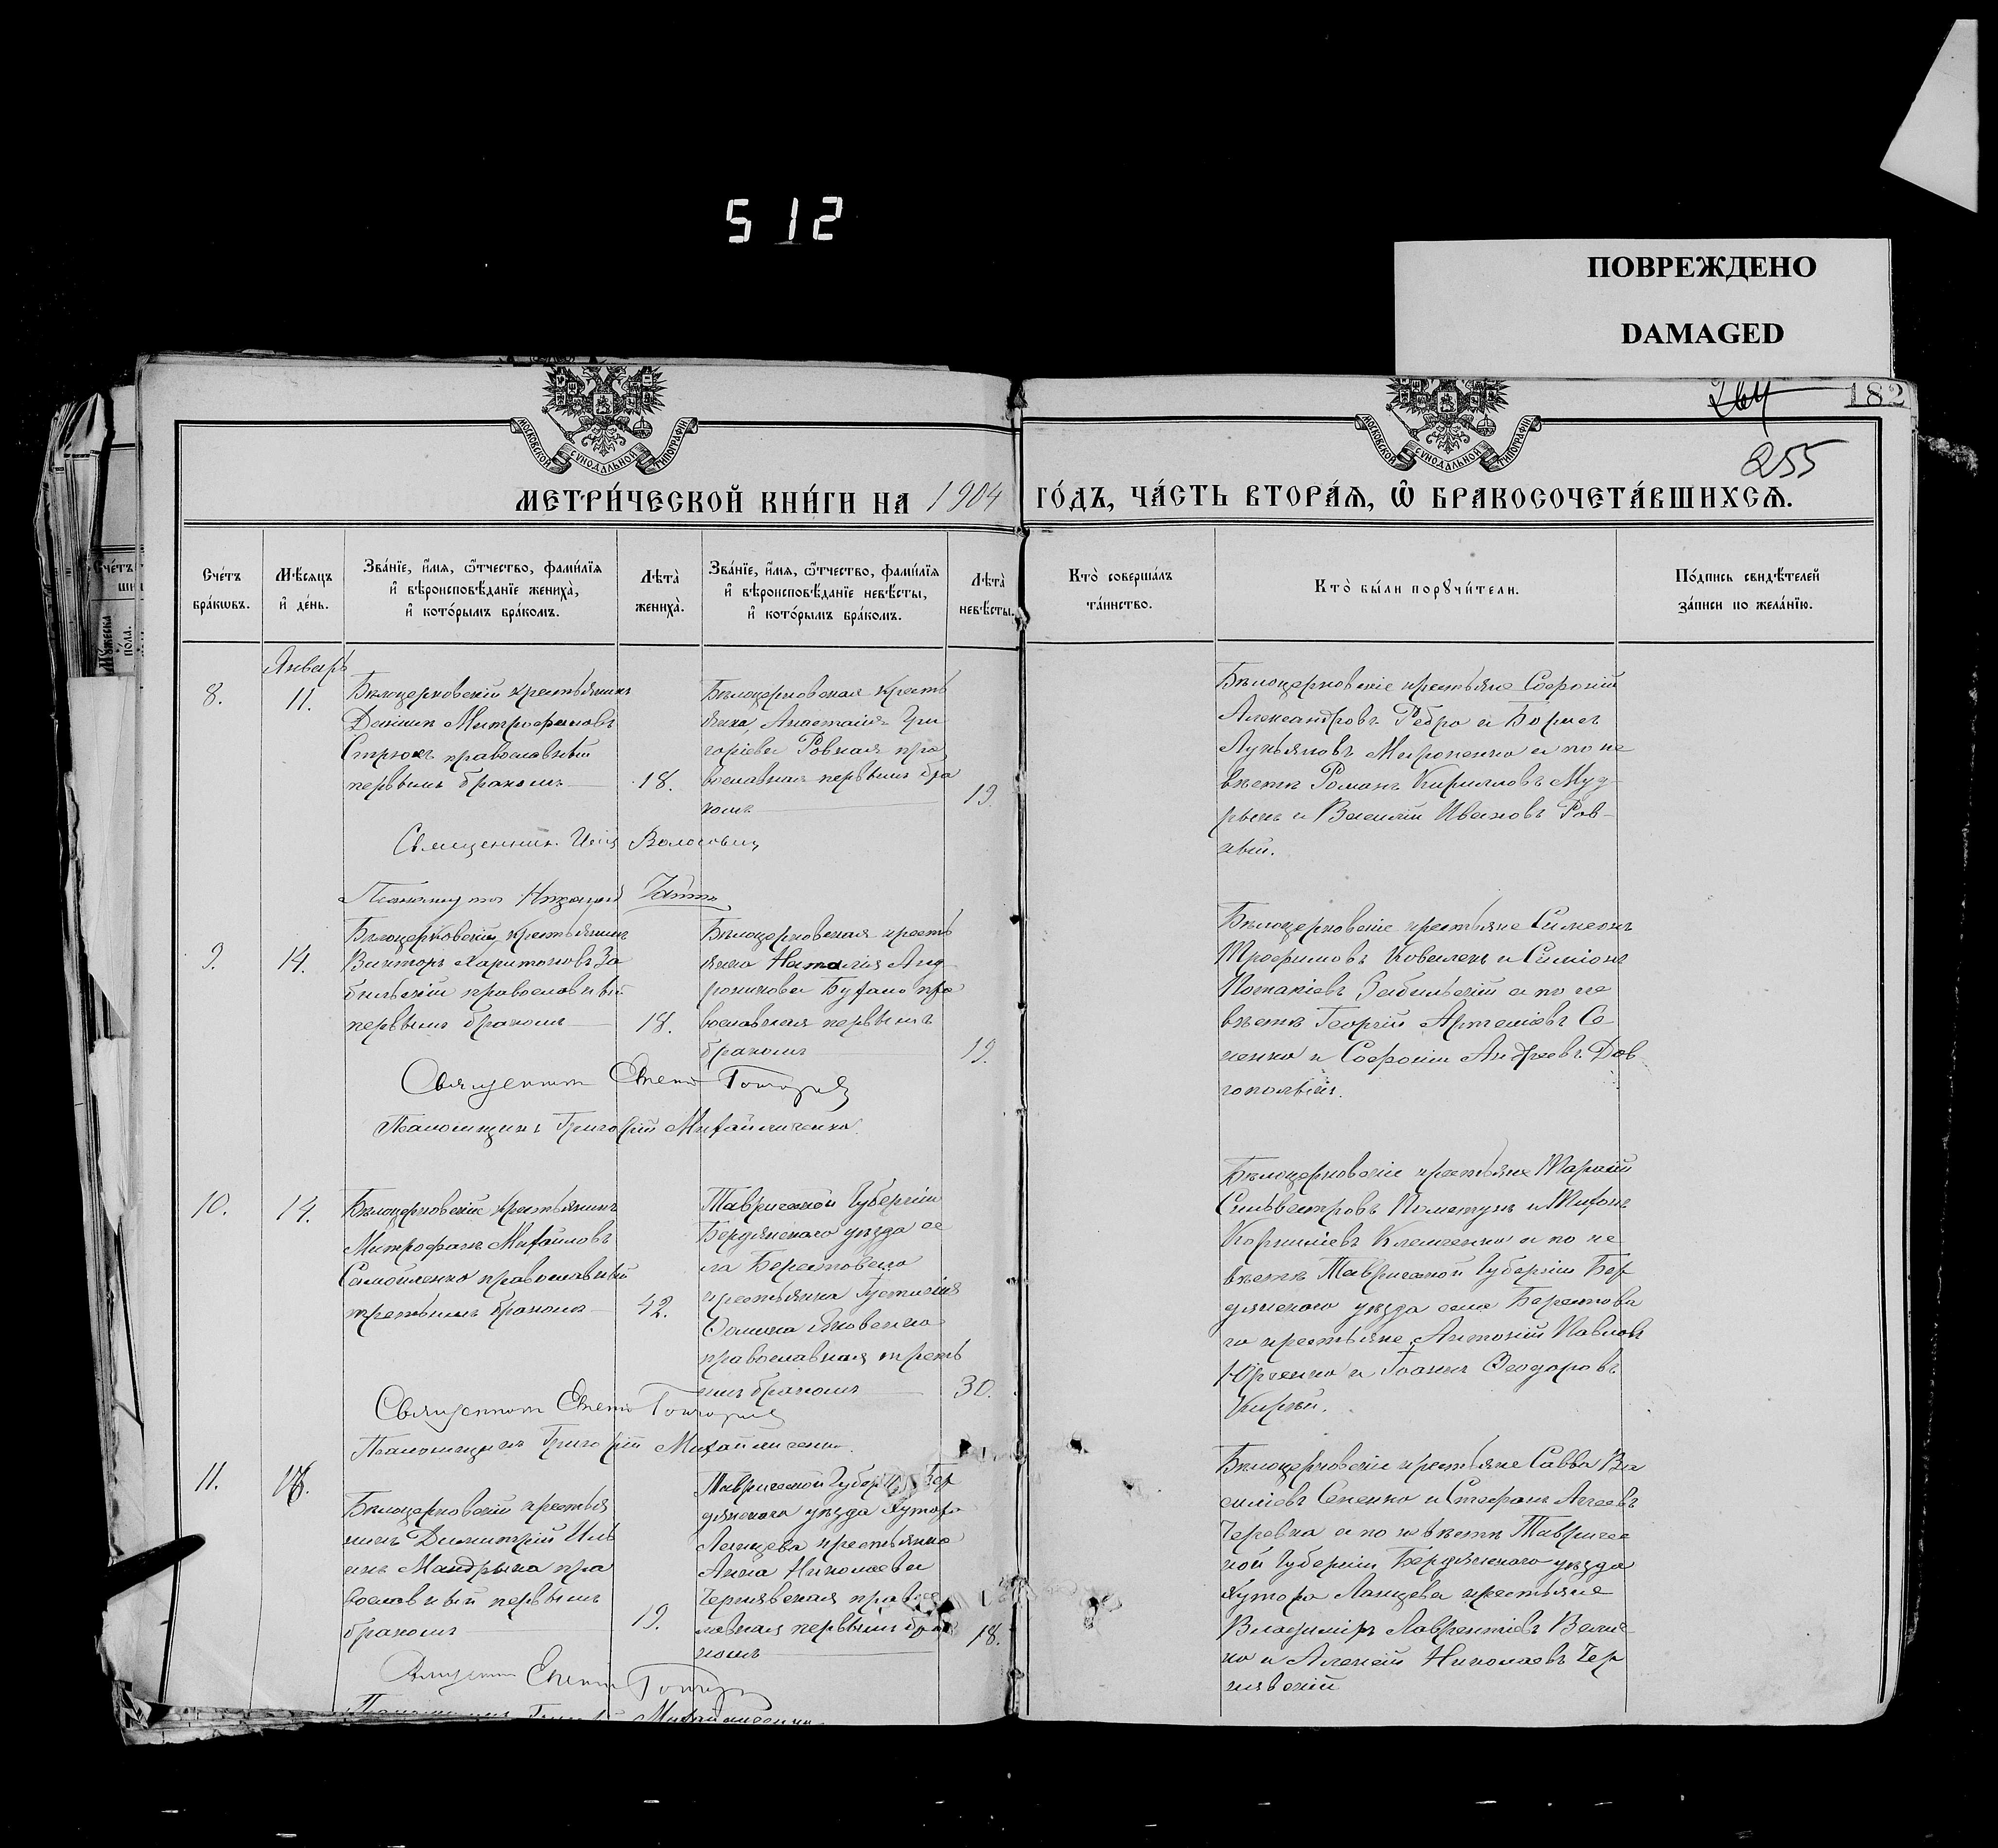 512
ПОВРЕЖДЕНО
DAMAGED
264
182
255
МОСКОВСКОЙ СѴНОДАЛЬНОЙ ТИПОГРАФІИ
МОСКОВСКОЙ СѴНОДАЛЬНОЙ ТИПОГРАФІИ
МЕТРИ́ЧЕСКОЙ КНИ́ГИ НА 1904 ГО́ДЪ, ЧА́СТЬ ВТОРА́Ѧ, Ѡ҆ БРАКОСОЧЕТА́ВШИХСѦ.
Сче́тъ
бра́кωвъ.
Мѣ́сяцъ
и҆ де́нь.
Зва́нїе, и҆́мѧ, ѻ҆́тчество, фами́лїѧ
и҆ вѣроисповѣ́данїе жениха̀,
и҆ кото́рымъ бра́комъ.
Лѣта̀
жениха̀.
Зва́нїе, и҆́мѧ, ѻ҆́тчество, фами́лїѧ
и҆ вѣроисповѣ́данїе невѣ́сты,
и҆ кото́рымъ бра́комъ.
Лѣта̀
невѣ́сты.
Кто̀ соверша́лъ
та́инство.
Кто̀ бы́ли порꙋчи́тели.
По́дпись свидѣ́телей
за́писи по жела́нїю.
Январь
8.
11.
Бѣлоцерковскій крестьянинъ
Даніилъ Митрофановъ
Стрюкъ православный
первымъ бракомъ
18.
Бѣлоцерковская кресть
янка, Анастасія Гри
горіева Ровная пра
вославная первымъ бра
комъ
19.
Бѣлоцерковскіе крестьяне Софроній
Александровъ Ребро и Борисъ
Лукьяновъ Мироненко а по не
вѣстѣ Романъ Кирилловъ Муд
рыкъ и Василій Ивановъ Ров-
ный.
Священникъ
9.
14.
Бѣлоцерковскій крестьянинъ
Викторъ Харитоновъ За
бильскій православный
первымъ бракомъ
18.
Бѣлоцерковская кресть
янка Наталія Анд
роникова Бухало пра
вославная первымъ
бракомъ
19.
Бѣлоцерковскіе крестьяне Симеонъ
Трофимовъ Ковалекъ и Симеонъ
Потапіевъ Забильскій а по не
вѣстѣ Георгій Артеміевъ Се
ненко и Софроній Андреевъ Дов
гополый.
Священникъ
Псаломщикъ Григорій Михайличенко.
10.
14.
Бѣлоцерковскій крестьянинъ
Митрофанъ Михайловъ
Самойленко православный
третьимъ бракомъ
42.
Таврической Губерніи
Бердянскаго уѣзда се
ла Берестоваго
крестьянка Іустинія
Ѳомина Яковенко
православная треть
имъ бракомъ
30.
Бѣлоцерковскіе крестьяне Тарасій
Сильвестровъ Пометунъ и Тихонъ
Корниліевъ Клименко а по не
вѣстѣ Таврической Губерніи Бер
дянскаго уѣзда села Берестова
го крестьяне Антоній Павловъ
Юрченко и Іоаннъ Ѳеодоровъ
Кирѣй.
Священникъ
Псаломщикъ Григорій Михайличенко.
11.
Бѣлоцерковскій крестья
нинъ Димитрій Иль
инъ Мандрыка пра
вославный первымъ
бракомъ
19.
Таврической Губерніи Бер
дянскаго уѣзда Хутора
Ланцева крестьянка
Анна Николаева
Чернявская правос
лавная первымъ бра
комъ
18.
Бѣлоцерковскіе крестьяне Савва Ва
силіевъ Сененко и Стефанъ Аггеевъ
Черевко а по невѣстѣ Тавричес
кой Губерніи Бердянскаго уѣзда
Хутора Ланцева крестьяне
Владиміръ Лаврентіевъ Велич
ко и Алексій Николаевъ Чер
нявскій
Псаломщикъ Григорій Михайличенко.